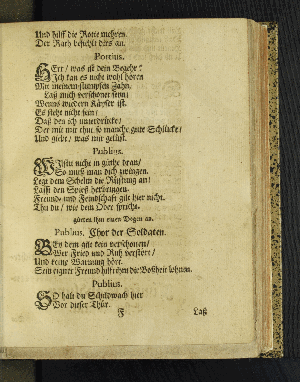 Und hilff die Rotte mehren.
Der Rath befiehlt dirs an.
Portius.
HErr / was ist dein Begehr?
Ich kan es nicht wohl hören
Mit meinem stumpffen Zahn.
Laß mich verschonet seyn /
Wenns wiedern Käyser ist.
Es steht nicht fein /
Daß den ich unterdrücke /
Der mir thut so manche gute Schlücke /
Und giebt / was mir gelüst.
Publius.
WIltu nicht in güthe dran /
So muß man dich zwingen.
Legt dem Schelm die Rüstung an!
Lasst den Spieß herbringen.
Freund- und Feindschafft gilt hier nicht.
Thu du / wie dem Ober spricht.
gürten ihm einen Degen an.
Publius, Chor der Soldaten.
BEy dem gilt kein verschonen /
Wer Fried und Ruh verstört /
Und keine Warnung hört.
Sein eigner Freund hilfft ihm die Boßheit lohnen.
Publius.
SO halt du Schildwach hier
Vor dieser Thür.
F Laß